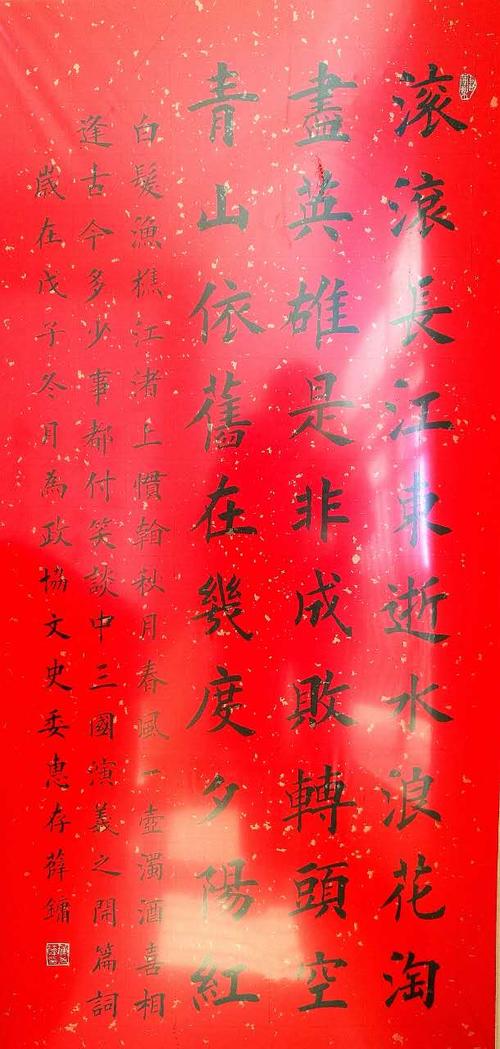 滚滚長江東逝水浪花淘
盡英雄是非成敗轉頭空
青山依舊在幾度夕陽紅
白髮漁樵江渚上慣翰秋月春風一壺濁酒喜相
逢古今多少事都付笑談中三國演義之開篇詞
歲在戊子冬月為政協文史委惠存薛鏞